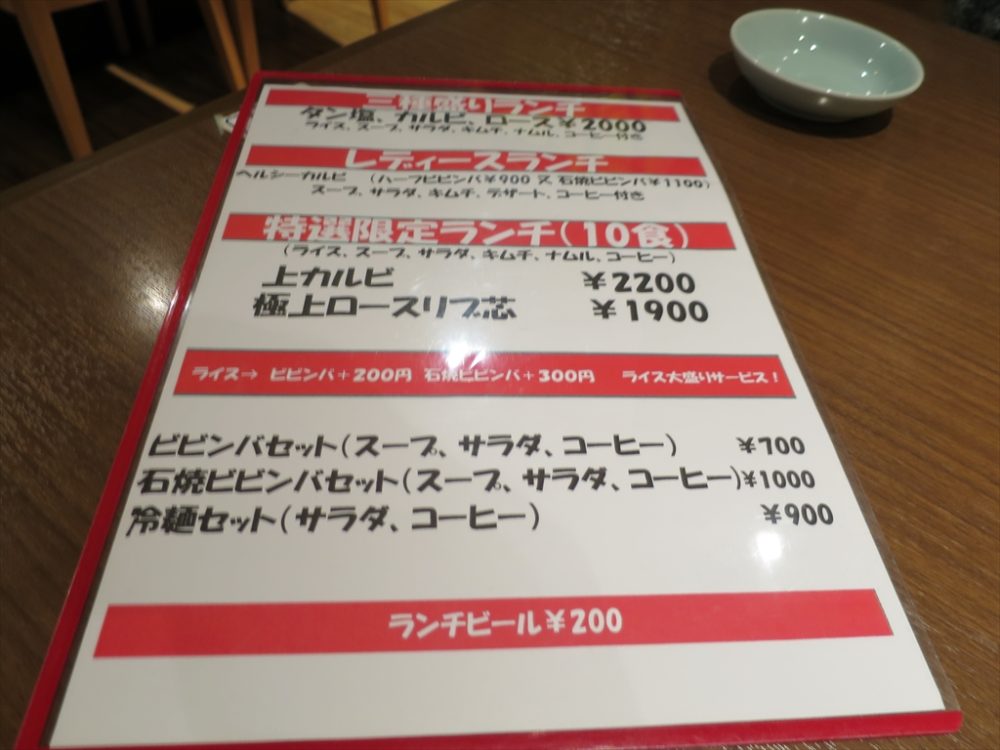 三種盛りランチ
タン塩、カルビ、ロース¥2000
ライス、スープ、サラダ、キムチ、ナムル、コーヒー付き
レディースランチ
ヘルシーカルビ (ハーフビビンバ¥900 又 石焼ビビンバ¥1100)
スープ、サラダ、キムチ、デザート、コーヒー付き
特選限定ランチ(10食)
(ライス、スープ、サラダ、キムチ、ナムル、コーヒー)
上カルビ ¥2200
極上ロースリブ芯 ¥1900
ライス⇒ ビビンバ+200円 石焼ビビンバ+300円 ライス大盛りサービス!
ビビンバセット(スープ、サラダ、コーヒー) ¥700
石焼ビビンバセット(スープ、サラダ、コーヒー)¥1000
冷麺セット(サラダ、コーヒー) ¥900
ランチビール¥200